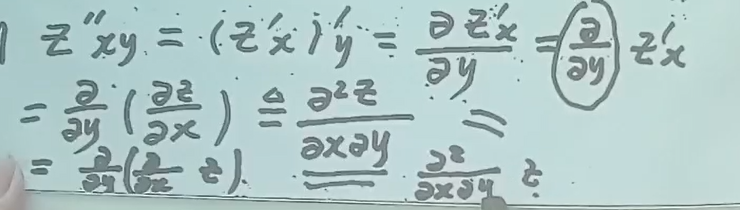 Z''xy = (Z'x)'y = ∂Z'x/∂y = ∂/∂y Z'x
= ∂/∂y (∂z/∂x) ≜ ∂²z/∂x∂y =
= ∂/∂y (∂/∂x z). ∂²/∂x∂y z